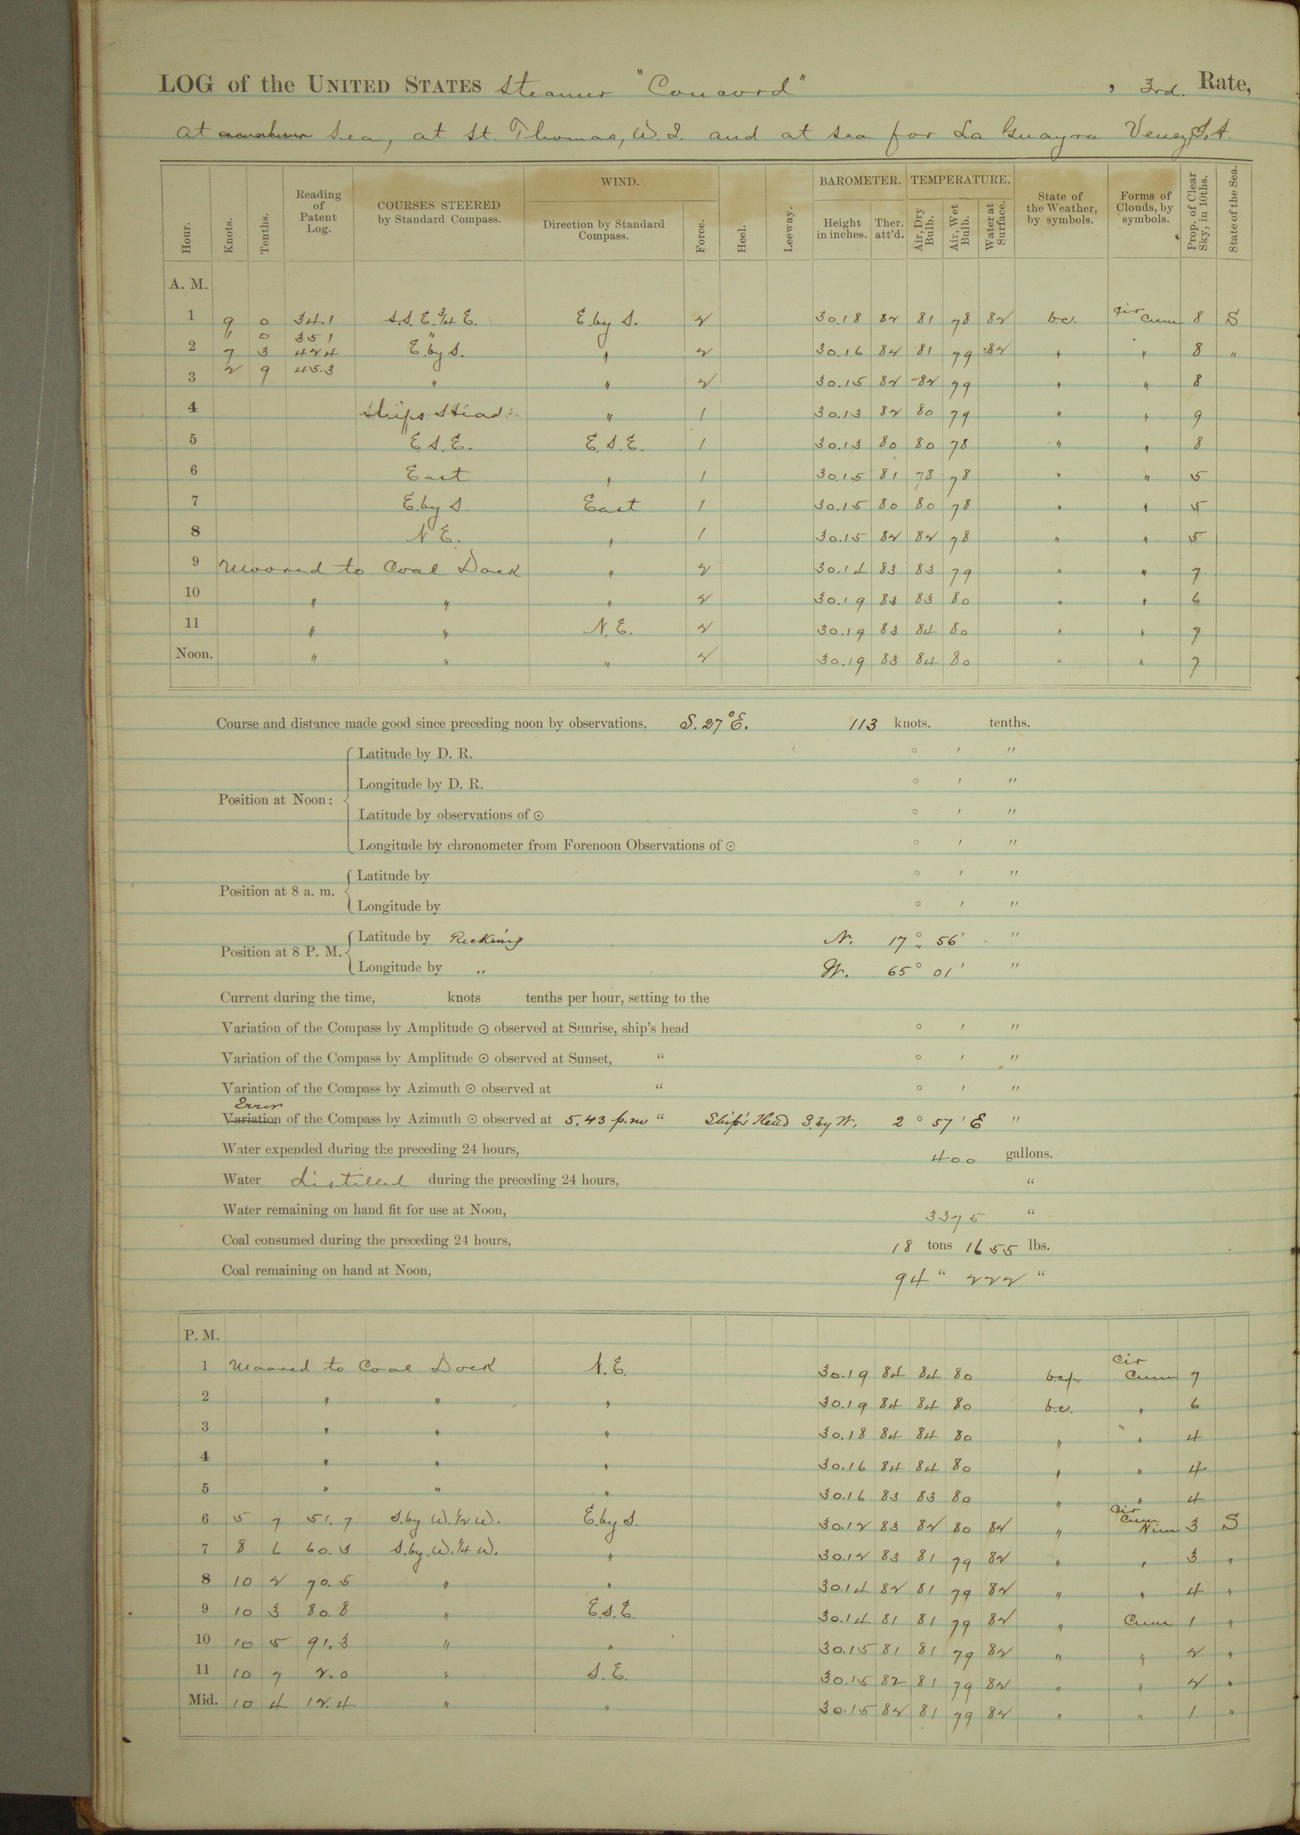 LOG of the UNITED STATES Steamer "Concord" , 3rd. Rate,
at Sea, at St. Thomas, W. I. and at sea for La Guayra Venez. S. A.
Hour. Knots. Tenths. Reading of Patent Log. COURSES STEERED by Standard Compass. WIND. Direction by Standard Compass. Force. Heel. Leeway. BAROMETER. Height in inches. Ther. att'd. TEMPERATURE. Air, Dry Bulb. Air, Wet Bulb. Water at Surface. State of the Weather, by symbols. Forms of Clouds, by symbols. Prop. of Clear Sky, in 10ths. State of the Sea.
A. M.
1 9 0 34.1 S.S.E. 3/4 E. E. by S. 2 30.18 82 81 78 82 b.c. Cir Cum 8 S
" 0 35 1
2 7 3 42 4 E. by S. " 2 30.16 82 81 79 82 " " 8 "
3 2 9 45.3 " " 2 30.15 82 82 79 " " 8
4 Ships Head: " 1 30.13 82 80 79 " " 9
5 E. S. E. E. S. E. 1 30.13 80 80 78 " " 8
6 East " 1 30.15 81 78 78 " " 5
7 E. by S. East 1 30.15 80 80 78 " " 5
8 N. E. " 1 30.15 82 82 78 " " 5
9 Moored to Coal Dock " 2 30.14 83 83 79 " " 7
10 " " " 2 30.19 83 83 80 " " 6
11 " " N. E. 2 30.19 83 84 80 " " 7
Noon. " " " 2 30.19 83 84 80 " " 7
Course and distance made good since preceding noon by observations, S. 27° E. 113 knots. tenths.
Latitude by D. R. ° ′ ″
Longitude by D. R. ° ′ ″
Position at Noon:
Latitude by observations of ⊙ ° ′ ″
Longitude by chronometer from Forenoon Observations of ⊙ ° ′ ″
Latitude by ° ′ ″
Position at 8 a. m.
Longitude by ° ′ ″
Latitude by Reck'ing N. 17° 56′ ″
Position at 8 P. M.
Longitude by " W. 65° 01′ ″
Current during the time, knots tenths per hour, setting to the
Variation of the Compass by Amplitude ⊙ observed at Sunrise, ship's head ° ′ ″
Variation of the Compass by Amplitude ⊙ observed at Sunset, " ° ′ ″
Variation of the Compass by Azimuth ⊙ observed at " ° ′ ″
Error
Variation of the Compass by Azimuth ⊙ observed at 5.43 p.m " Ship's Head S. by W. 2° 57′ E ″
Water expended during the preceding 24 hours, 400 gallons.
Water distilled during the preceding 24 hours, "
Water remaining on hand fit for use at Noon, 3375 "
Coal consumed during the preceding 24 hours, 18 tons 1655 lbs.
Coal remaining on hand at Noon, 94 " 222 "
P. M.
1 Moored to Coal Dock N. E. 30.19 84 84 80 b.c.p. Cir Cum 7
2 " " " 30.19 84 84 80 b.c. " 6
3 " " " 30.18 84 84 80 " " 4
4 " " " 30.16 84 84 80 " " 4
5 " " " 30.16 83 83 80 " " 4
6 5 7 51.7 S. by W. 1/2 W. E. by S. 30.12 83 82 80 82 " Cir Cum Nim 3 S
7 8 6 60.3 S. by W. 1/4 W. " 30.12 83 81 79 82 " " 3 "
8 10 2 70.5 " " 30.14 82 81 79 82 " " 4 "
9 10 3 80.8 " E. S. E. 30.14 81 81 79 82 " Cum 1 "
10 10 5 91.3 " " 30.15 81 81 79 82 " " 2 "
11 10 7 2.0 " S. E. 30.15 82 81 79 82 " " 2 "
Mid. 10 4 12.4 " " 30.15 82 81 79 82 " " 1 "